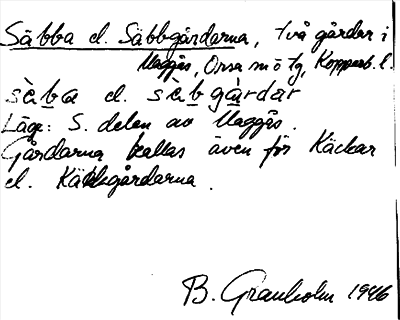 Säbba el. Säbbgårdarna, två gårdar i
Maggås, Orsa sn o tg, Kopparb. l.
sàba el. sàbgårdar
Läge: S. delen av Maggås.
Gårdarna kallas även för Käckar
el. Käckgårdarna.
B. Granholm 1946